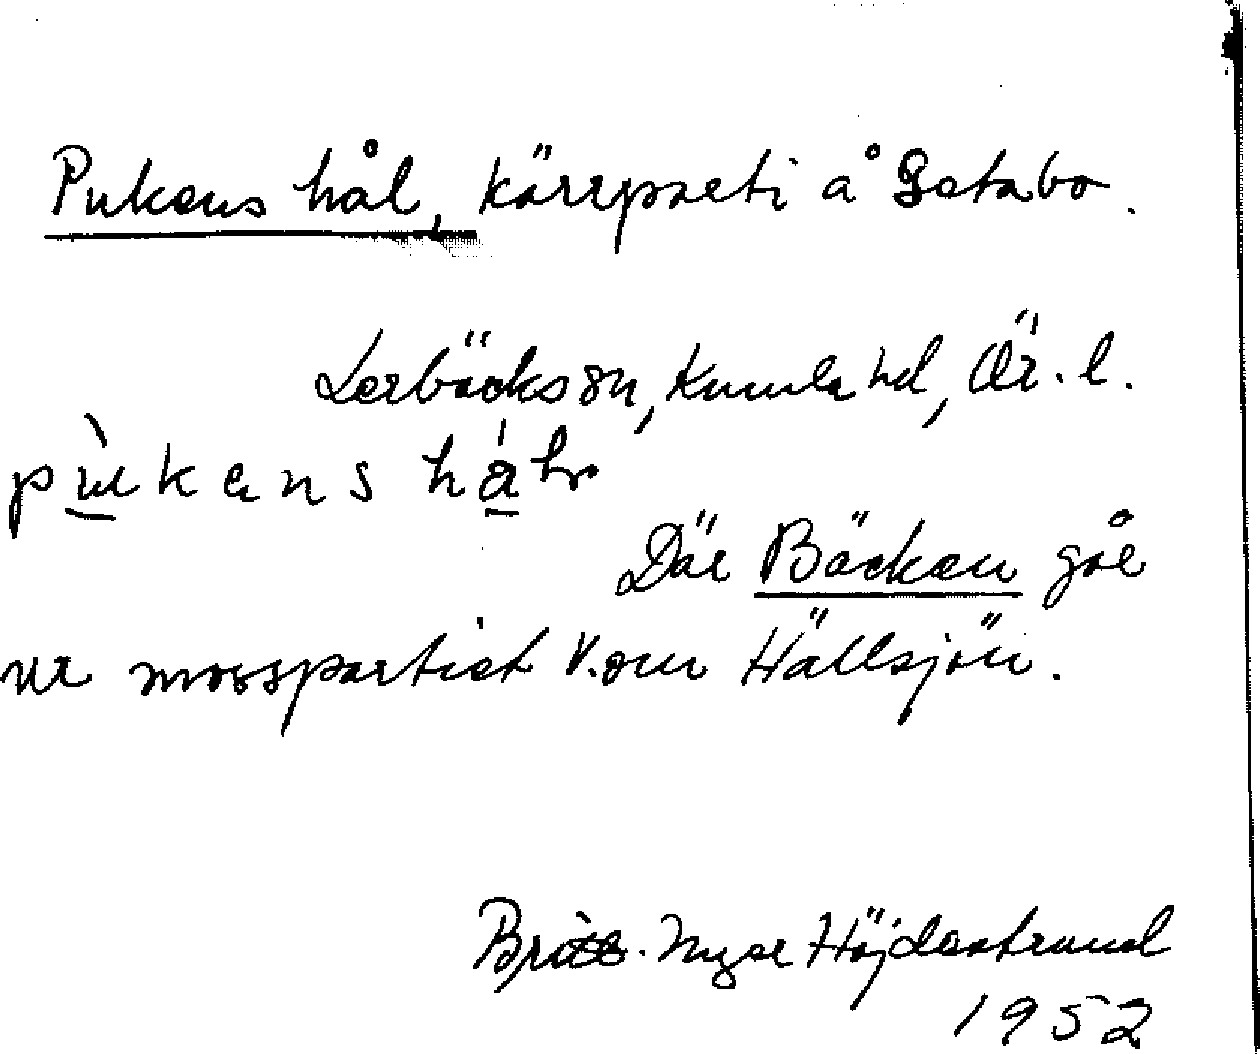 Pukens hål, kärrparti å Getabo.
Lerbäcks sn, Kumla hd, Ör. l.
pùkens hǻl
Där Bäcken går
ur mosspartiet V. om Hällsjön.
Britt. Inger Höjdestrand
1952